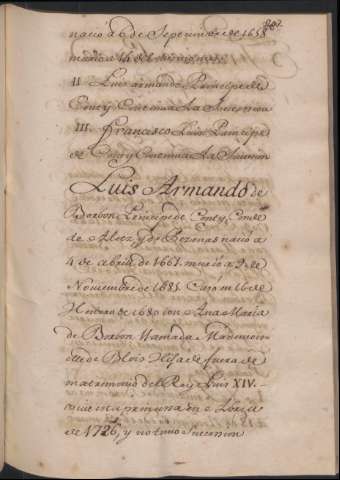 nacio a 6 de Septiembre de 1658
murio a 14 del mismo mes
II Luis armando Principe de
Conty Continua La Sucession
III. Francisco Luis Principe
de Conty Continua La Sucession
Luis Armando de
Borbon Principe de Conty, Conde
de Aletz y de Pezenas nacio a
4 de abril de 1661. murio a 9 de
Noviembre de 1685. Casó en 16 de
Henero de 1680 con Ana Maria
de Borbon llamada Madamoise
de Blois Hija de fuera de
matrimonio del Rey Luis XIV.
de 1726, y no tuvo Sucession